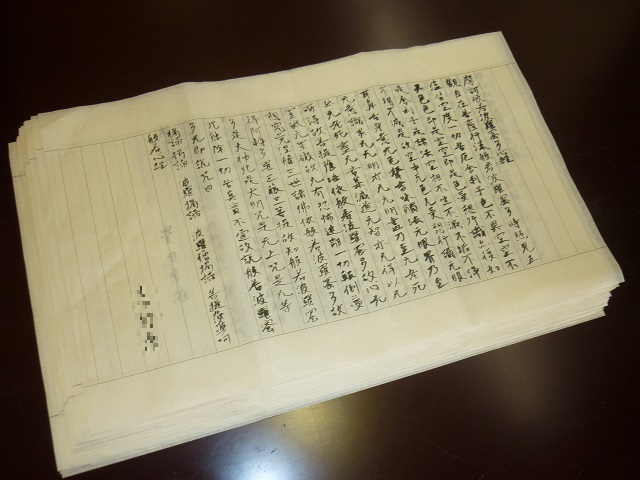 摩訶般若波羅蜜多心経
観自在菩薩行深般若波羅蜜多時照見五
蘊皆空度一切苦厄舎利子色不異空空不
異色色即是空空即是色受想行識亦復如
是舎利子是諸法空相不生不滅不垢不浄
不増不減是故空中无色无受想行識无眼
耳鼻舌身意无色聲香味觸法无眼界乃至
无意識界无无明亦无无明盡乃至无老死
亦无老死盡无苦集滅道无智亦无得以无
所得故菩提薩埵依般若波羅蜜多故心无
罣礙无罣礙故无有恐怖遠離一切顛倒夢
想究竟涅槃三世諸佛依般若波羅蜜多故
得阿耨多羅三藐三菩提故知般若波羅蜜
多是大神咒是大明咒是无上咒是无等
咒能除一切苦真實不虚故説般若波羅蜜
多咒即説咒曰
羯諦 羯諦 波羅羯諦 波羅僧羯諦 菩提薩婆訶
般若心経